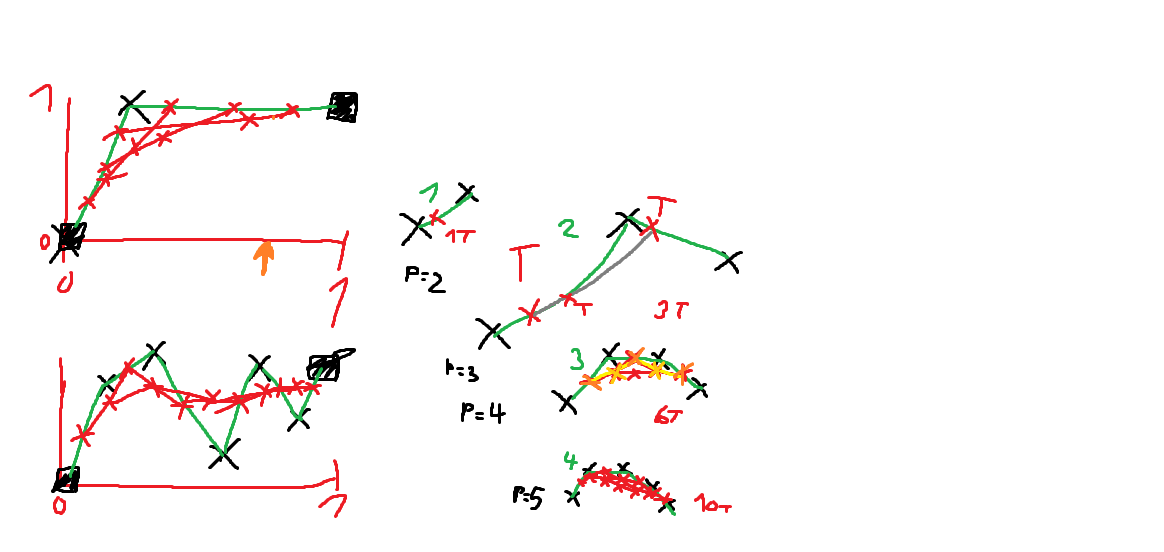 1
0
0
1
1
1T
P=2
T
2
T
T
3T
P=3
3
P=4
6T
4
P=5
10T
0
1